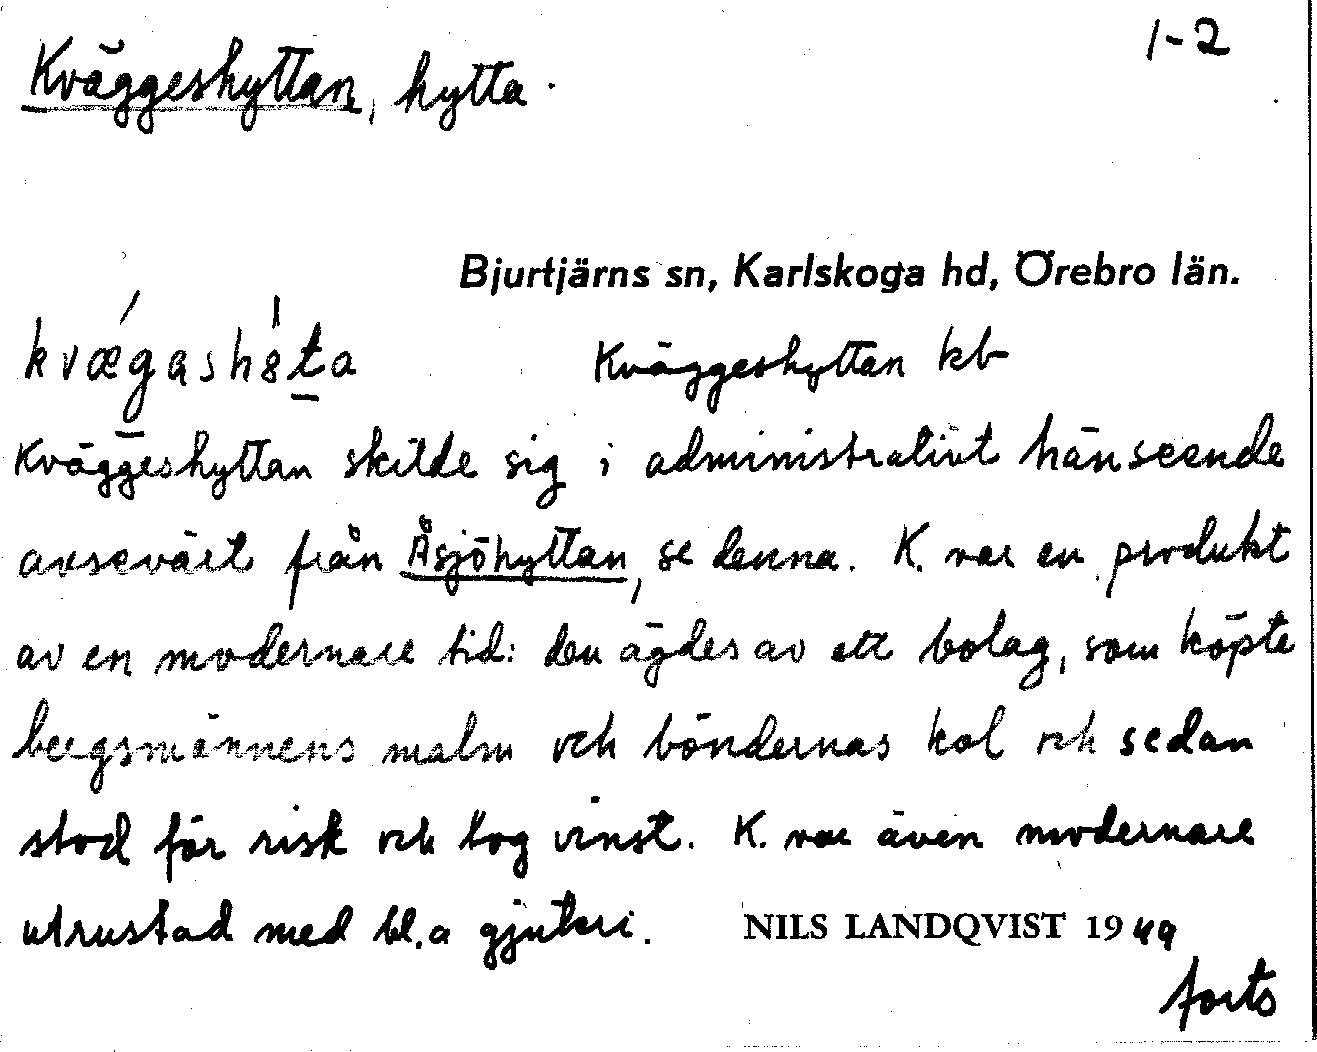 1-2
Kväggeshyttan, hytta.
Bjurtjärns sn, Karlskoga hd, Örebro län.
kvǽgashȣ̍ta Kväggeshyttan kb
Kväggeshyttan skilde sig i administrativt hänseende
avsevärt från Åsjöhyttan, se denna. K. var en produkt
av en modernare tid: den ägdes av ett bolag, som köpte
bergsmännens malm och böndernas kol och sedan
stod för risk och tog vinst. K. var även modernare
utrustad med bl.a gjuteri. NILS LANDQVIST 1949
forts